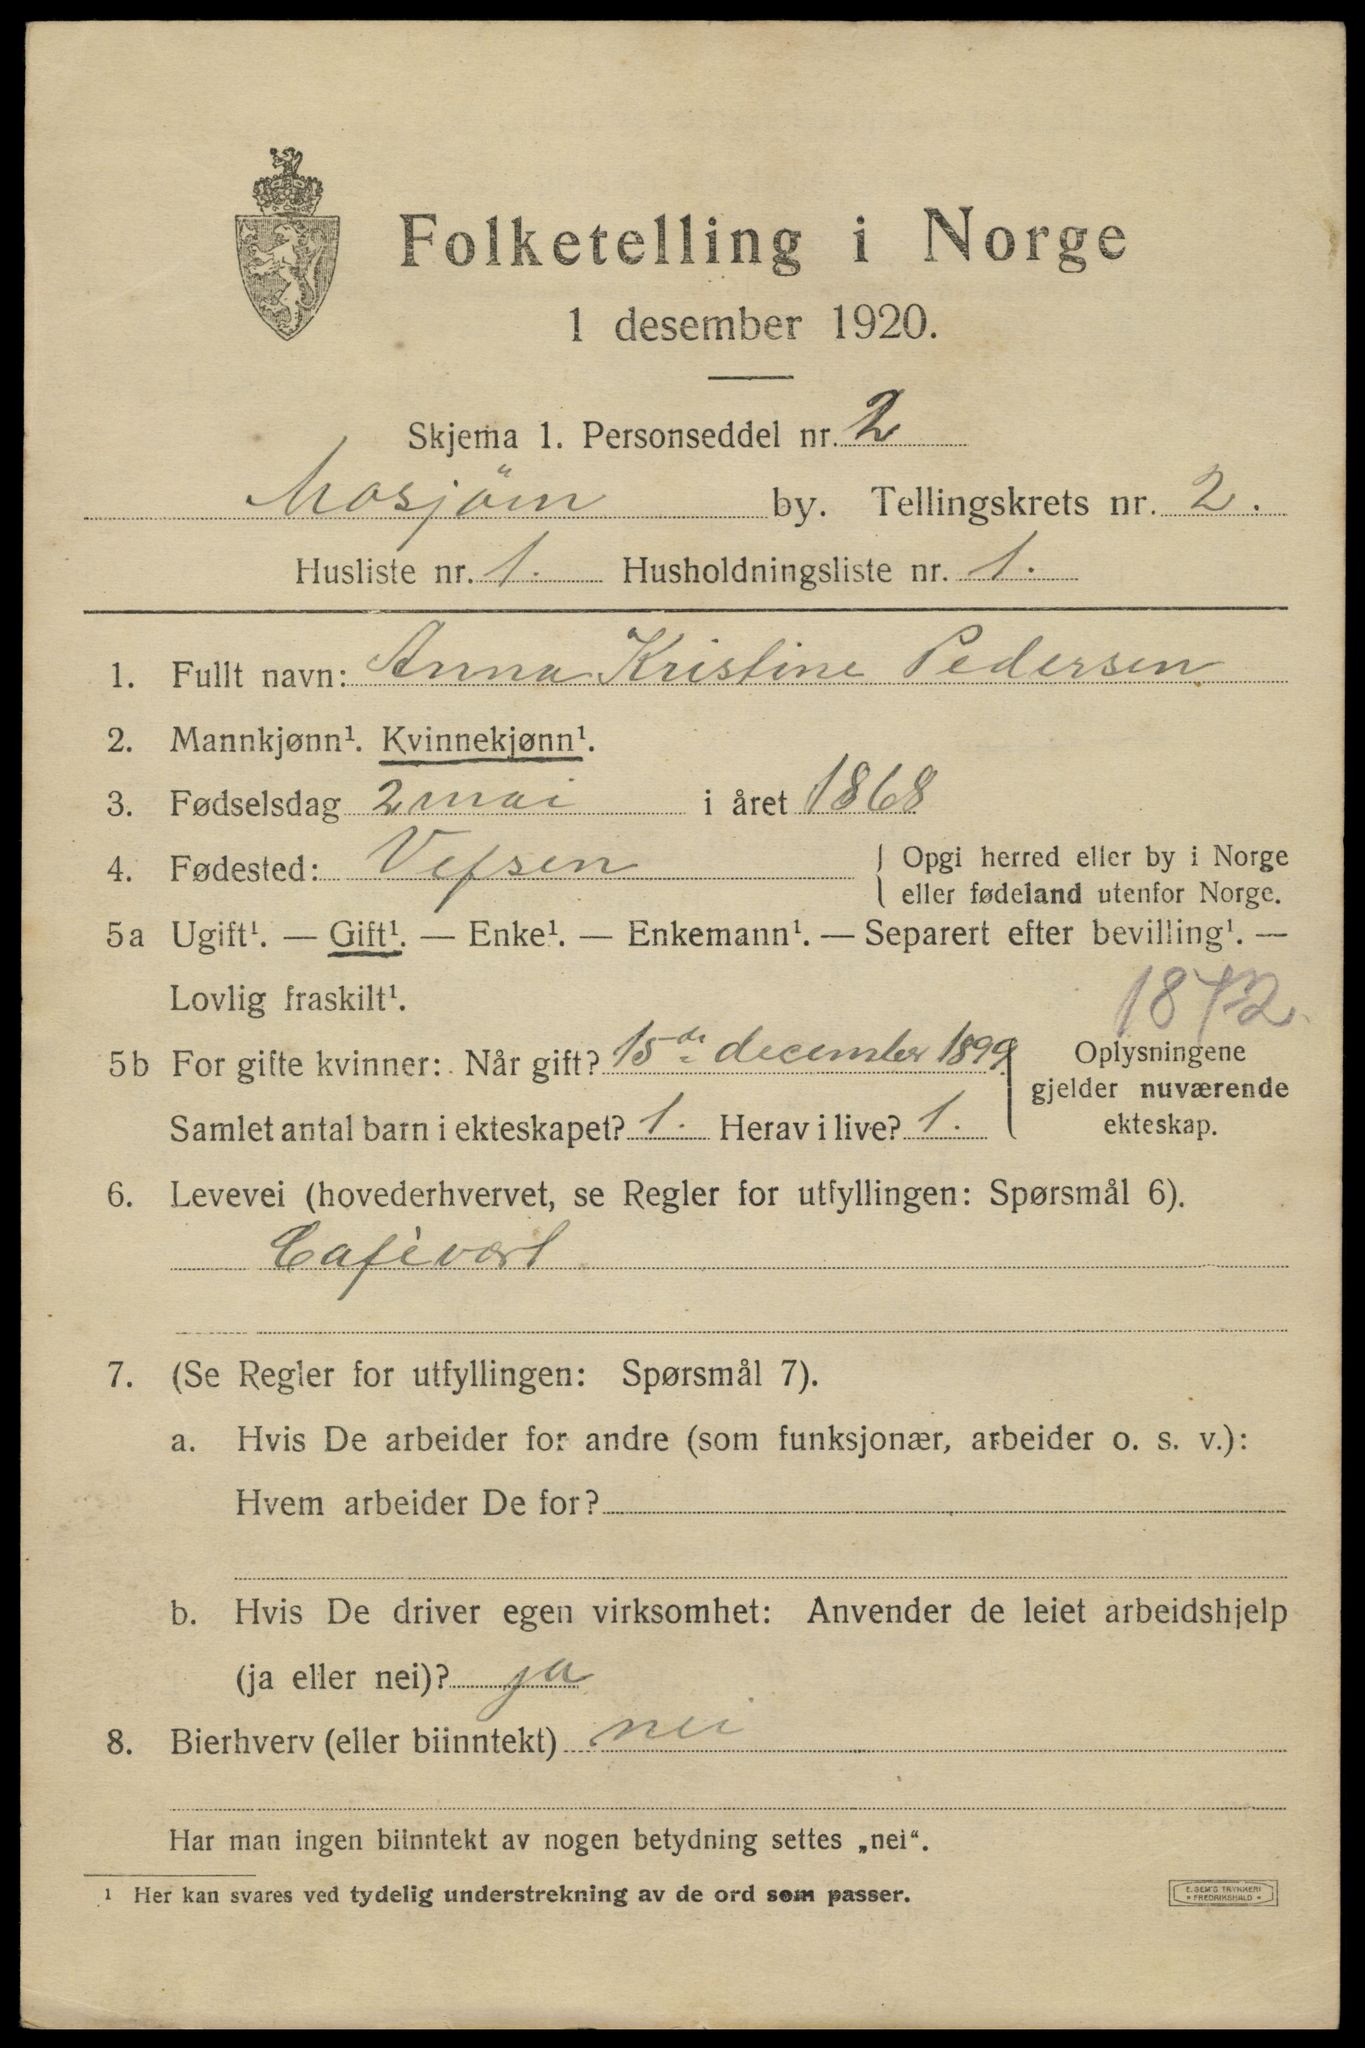 Folketelling i Norge
1 desember 1920.
Skjema 1. Personseddel nr. 2
Mosjöen by. Tellingskrets nr. 2.
Husliste nr. 1. Husholdningsliste nr. 1.
1. Fullt navn: Anna Kristine Pedersen
2. Mannkjønn¹. Kvinnekjønn¹.
3. Fødselsdag 2 mai i året 1868
4. Fødested: Vefsen { Opgi herred eller by i Norge
eller fødeland utenfor Norge.
5a Ugift¹. — Gift¹. — Enke¹. — Enkemann¹. — Separert efter bevilling¹. —
Lovlig fraskilt¹.
1872
5b For gifte kvinner: Når gift? 15de december 1899
Samlet antal barn i ekteskapet? 1. Herav i live? 1.
Oplysningene
gjelder nuværende
ekteskap.
6. Levevei (hovederhvervet, se Regler for utfyllingen: Spørsmål 6).
Cafévært
7. (Se Regler for utfyllingen: Spørsmål 7).
a. Hvis De arbeider for andre (som funksjonær, arbeider o. s. v.):
Hvem arbeider De for?
b. Hvis De driver egen virksomhet: Anvender de leiet arbeidshjelp
(ja eller nei)? ja
8. Bierhverv (eller biinntekt) nei
Har man ingen biinntekt av nogen betydning settes „nei“.
1 Her kan svares ved tydelig understrekning av de ord som passer.
E. SEM'S TRYKKERI
* FREDRIKSHALD *